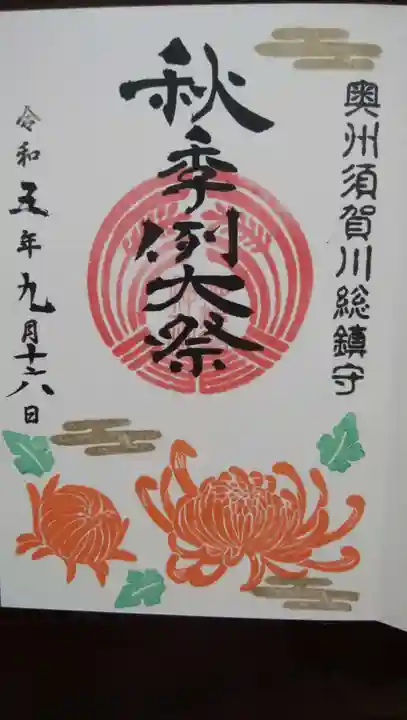 奥州須賀川総鎮守
秋季例大祭
令和五年九月十六日